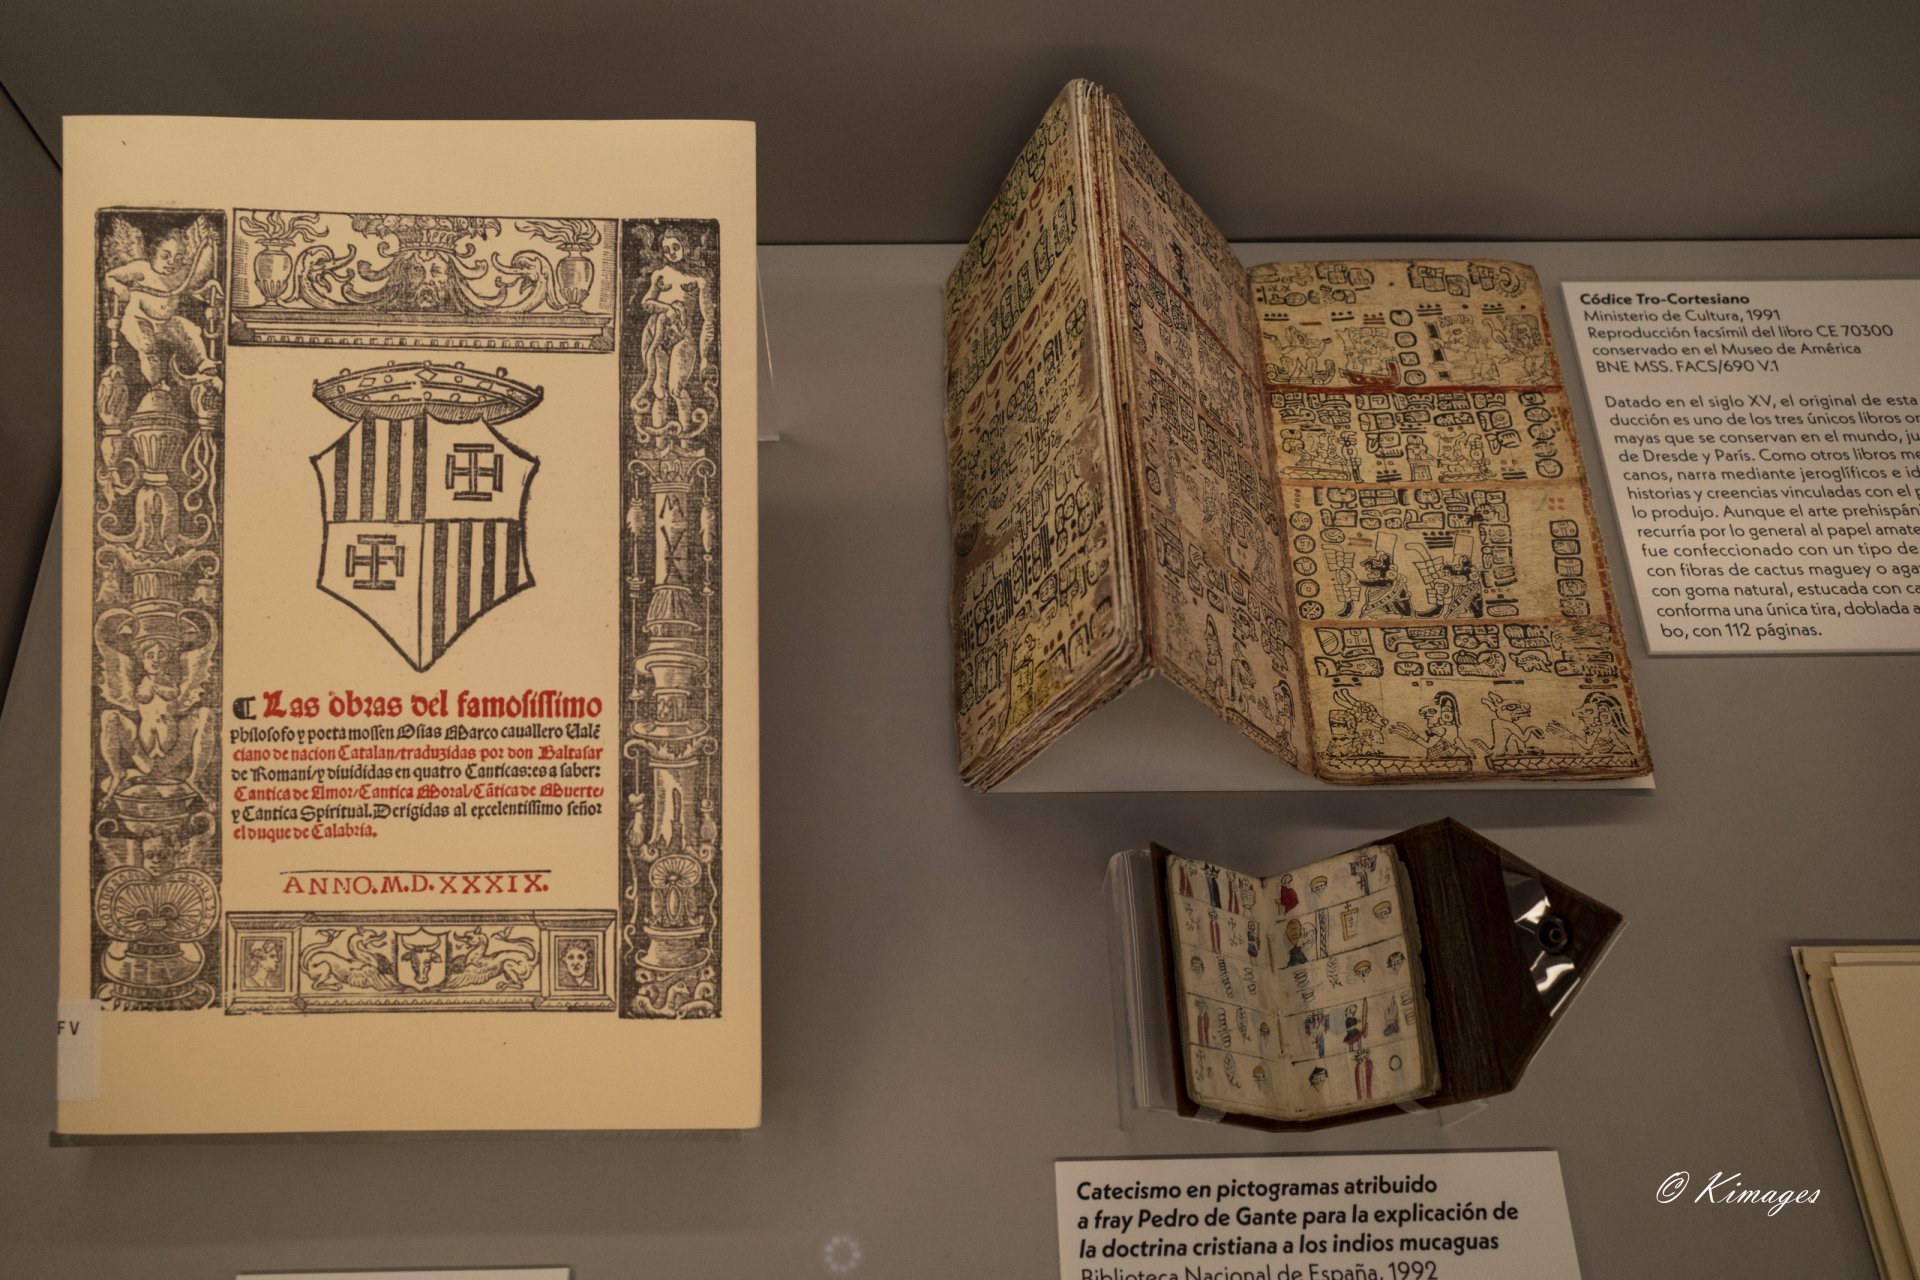 ¶ Las obras del famosissimo
philosofo y poeta mossen Osias Marco cauallero Valẽ
ciano de nacion Catalan/traduzidas por don Baltasar
de Romani/y diuididas en quatro Canticas:es a saber:
Cantica de Amor/Cantica Moral/Cãtica de Muerte/
y Cantica Spiritual.Derigidas al excelentissimo señor
el duque de Calabria.
ANNO.M.D.XXXIX.
FV
Códice Tro-Cortesiano
Ministerio de Cultura, 1991
Reproducción facsímil del libro CE 70300
conservado en el Museo de América
BNE MSS. FACS/690 V.1
Datado en el siglo XV, el original de esta
ducción es uno de los tres únicos libros or
mayas que se conservan en el mundo, ju
de Dresde y París. Como otros libros me
canos, narra mediante jeroglíficos e id
historias y creencias vinculadas con el p
lo produjo. Aunque el arte prehispán
recurría por lo general al papel amate
fue confeccionado con un tipo de
con fibras de cactus maguey o aga
con goma natural, estucada con ca
conforma una única tira, doblada a
bo, con 112 páginas.
Catecismo en pictogramas atribuido
a fray Pedro de Gante para la explicación de
la doctrina cristiana a los indios mucaguas
Biblioteca Nacional de España, 1992
© Kimages